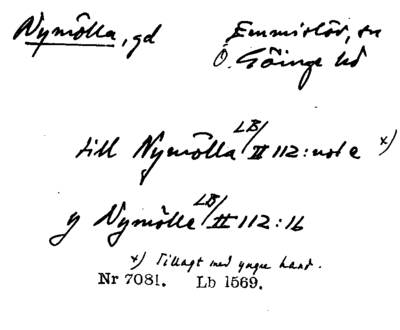 Nymölla, gd Emmislöv, sn
Ö. Göinge hd
till Nymölla LB/ II 112: not e x)
y Nymölle LB/ II 112:16
x) Tillagt med yngre hand.
Nr 7081. Lb 1569.